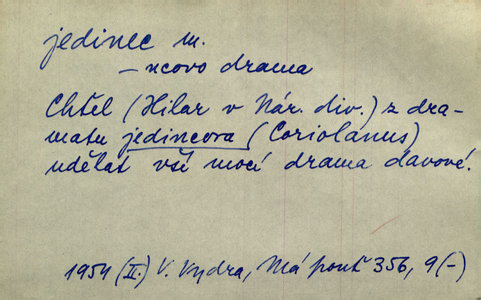 jedinec m.
– ncovo drama
Chtěl (Hilar v Nár. div.) z dra-
matu jedincova (Coriolanus)
udělat vší mocí drama davové.
1954 (II.) V. Vydra, Má pouť 356, 9 (-)